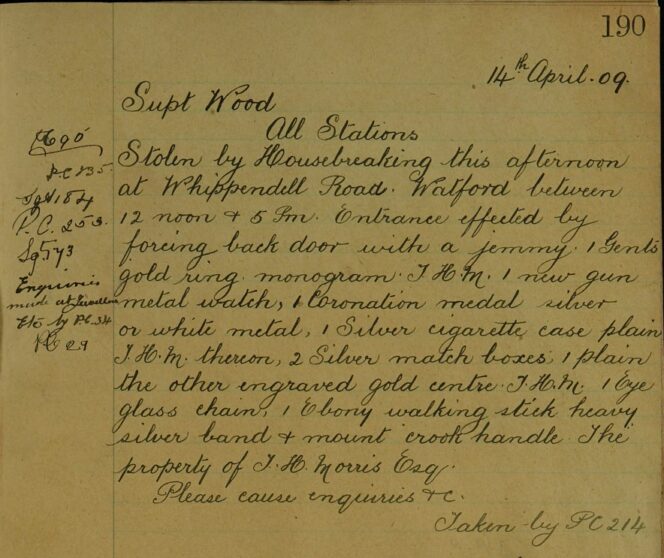 190
14th April. 09.
Supt Wood
All Stations
Stolen by Housebreaking this afternoon
at Whippendell Road. Watford between
12 noon & 5 Pm. Entrance effected by
forcing back door with a jemmy. 1 Gents
gold ring. monogram. J. H. M. 1 new gun
metal watch, 1 Coronation medal silver
or white metal, 1 Silver cigarette case plain
J. H. M. thereon, 2 Silver match boxes. 1 plain
the other engraved gold centre. J. H. M. 1 Eye
glass chain, 1 Ebony walking stick heavy
silver band & mount crook handle The
property of J. H. Morris Esq.
Please cause enquiries &c.
Taken by PC 214
P.C 235.
Sgt 184
P.C. 253.
Sgt 73
Enquiries
made at
Etc by P.C. 34
PC 29